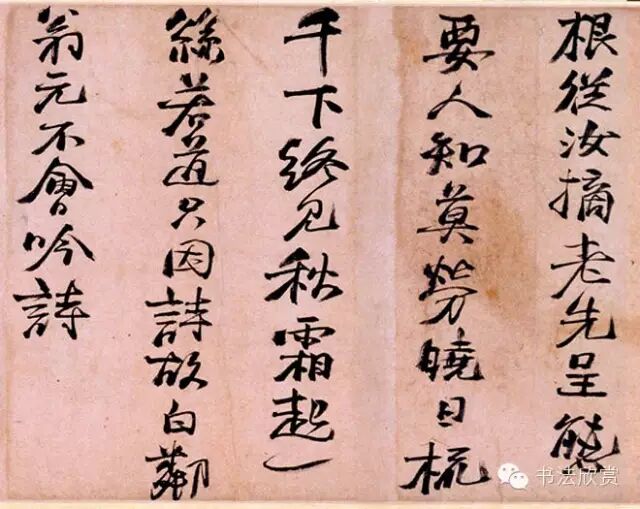 根從汝摘老先呈能
要人知莫勞曉日梳
千下終見秋霜起一
絲若道只因詩故白鄰
翁元不會吟詩
书法欣赏